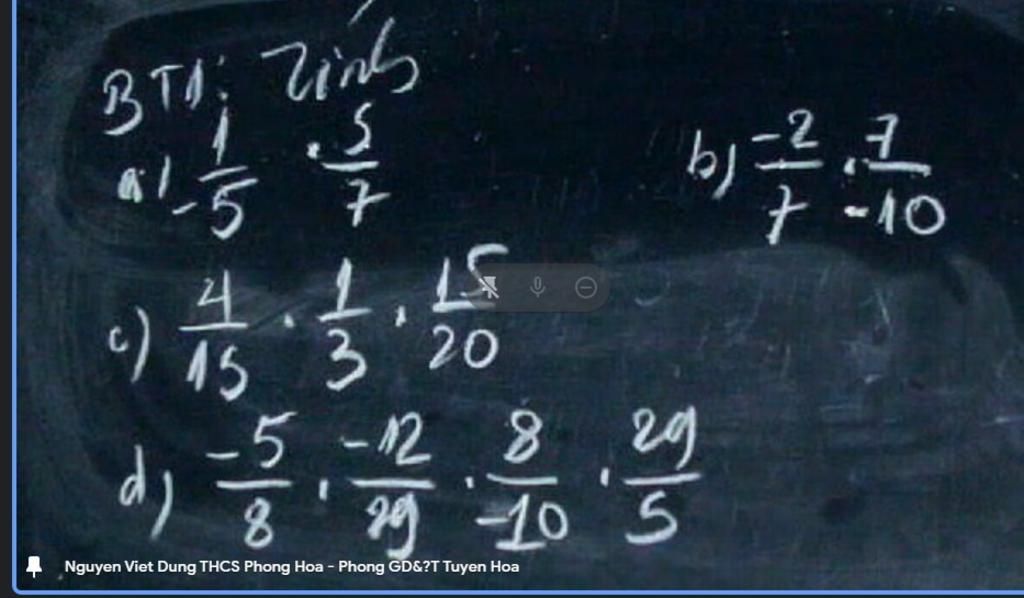 BT1: Tính
a) 1/-5 . 5/7
b) -2/7 . 7/-10
c) 4/15 . 1/3 . 15/20
d) -5/8 . -12/29 . 8/-10 . 29/5
Nguyen Viet Dung THCS Phong Hoa - Phong GD&?T Tuyen Hoa